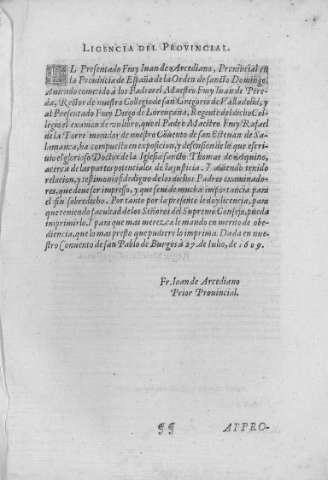 LICENCIA DEL PROVINCIAL.
EL Presentado Fray Iuan de Arcediano, Prouincial en
la Prouincia de España de la Orden de sancto Domingo,
Auiendo cometido à los Padres el Maestro Fray Iuan de Pere-
da, Rector de nuestro Collegio de san Gregorio de Valladolid, y
al Presentado Fray Diego de Lorençana, Regente del dicho Col-
legio; el examen de vn libro, que el Padre Maestro Fray Rafael
de la Torre morador de nuestro Cõuento de san Esteuan de Sa-
lamanca, ha compuesto en exposicion, y defension de lo que escri-
uio el glorioso Doctor de la Iglesia sancto Thomas de Aquino,
acerca de las partes potenciales de la justicia. Y auiendo tenido
relacion, y testimonio fidedigno de los dichos Padres examinado-
res, que deue ser impresso, y que serà de mucha importancia para
el fin sobredicho. Por tanto por la presente le doy licencia, para
que teniendo facultad de los Señores del Supremo Consejo, pueda
imprimirlo, y para que mas merezca le mando en merito de obe-
diencia, que lo mas presto que pudiere lo imprima. Dada en nue-
stro Conuento de san Pablo de Burgos à 27 de Iulio, de 1609.
Fr. Ioan de Arcediano
Prior Prouincial.
¶¶ APPRO-